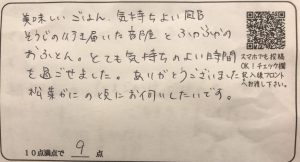 美味しいごはん、気持ちよい風呂
そうじの行き届いた部屋とふかふかの
おふとん。とても気持ちのよい時間
を過ごせました。ありがとうございました
松葉がにの頃にお伺いしたいです。
スマホでも投稿
OK!チェック欄
記入後フロント
へお渡し下さい。
10点満点で 9 点